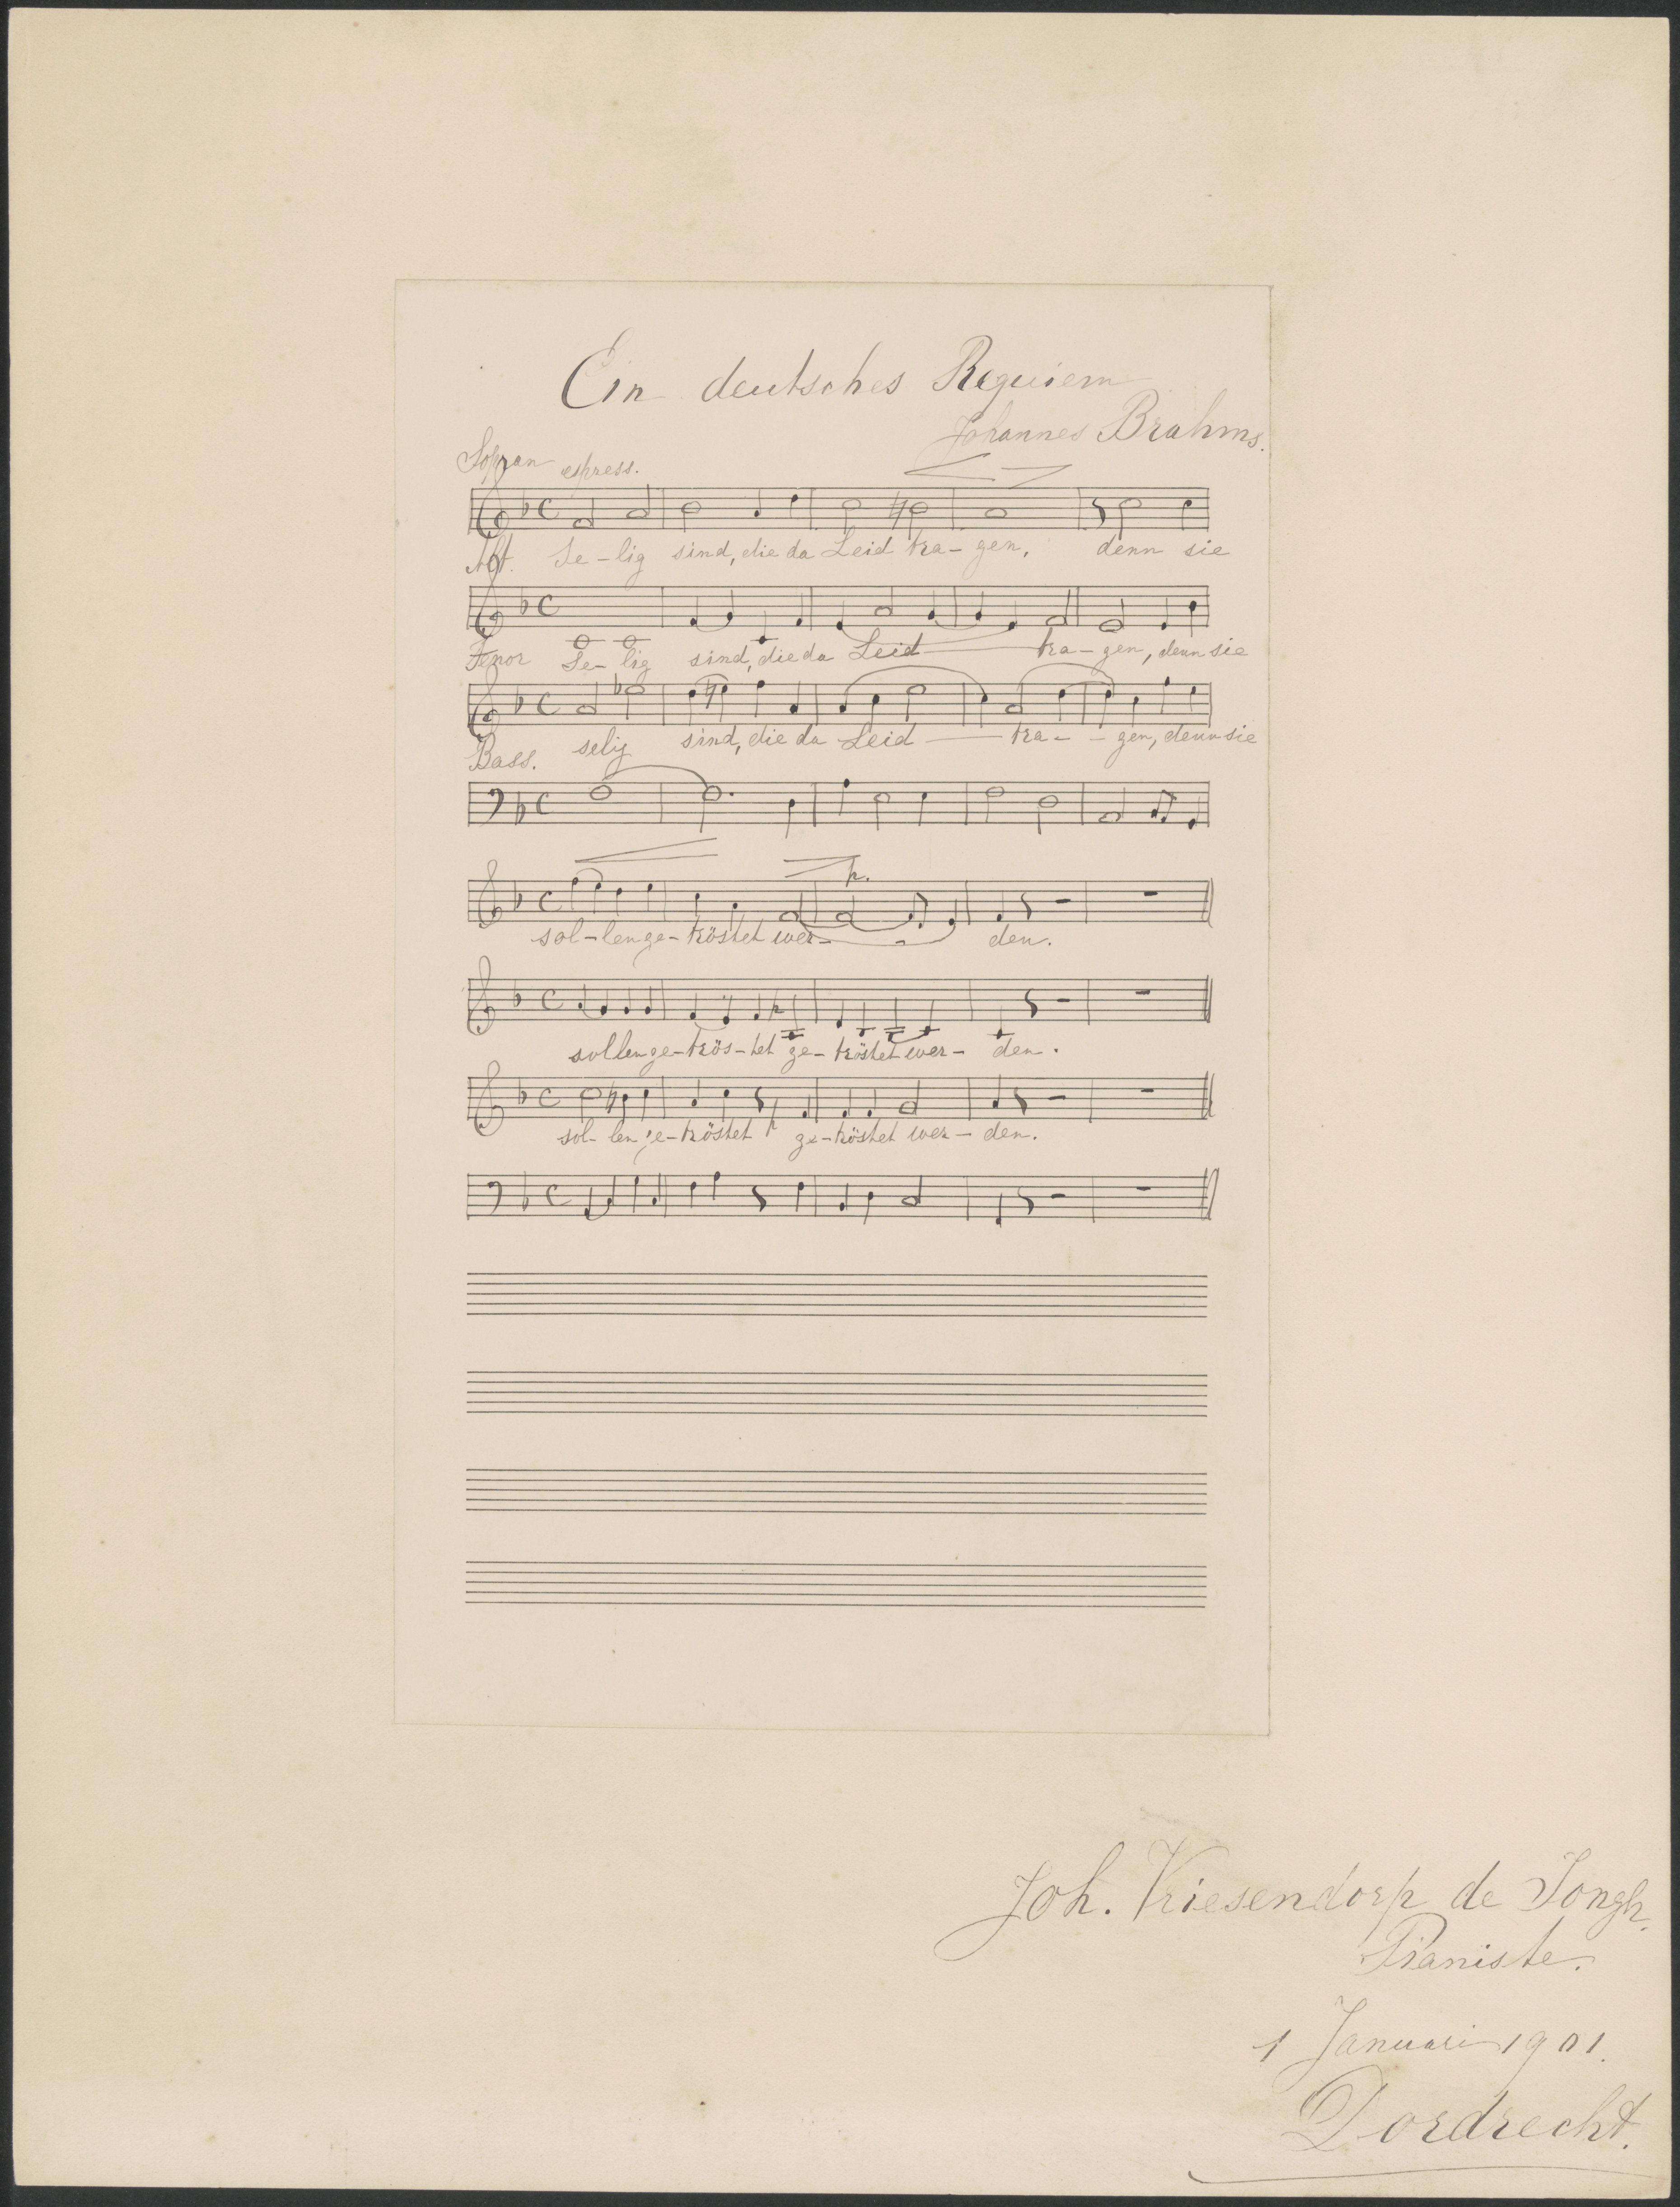 Ein deutsches Requiem
Johannes Brahms.
Sopran espress.
Alt. Se-lig sind, die da Leid tra-gen, denn sie
Tenor Se-lig sind, die da Leid tra-gen, denn sie
Bass. selig sind, die da Leid tra-gen, denn sie
p.
sol-len ge-tröstet wer- den.
p
sollen ge-trös-tet ge-tröstet wer- den.
sol-len ge-tröstet p ge-tröstet wer-den.
Joh. Vriesendorp de Jongh.
Pianiste.
1 Januari 1901.
Dordrecht.